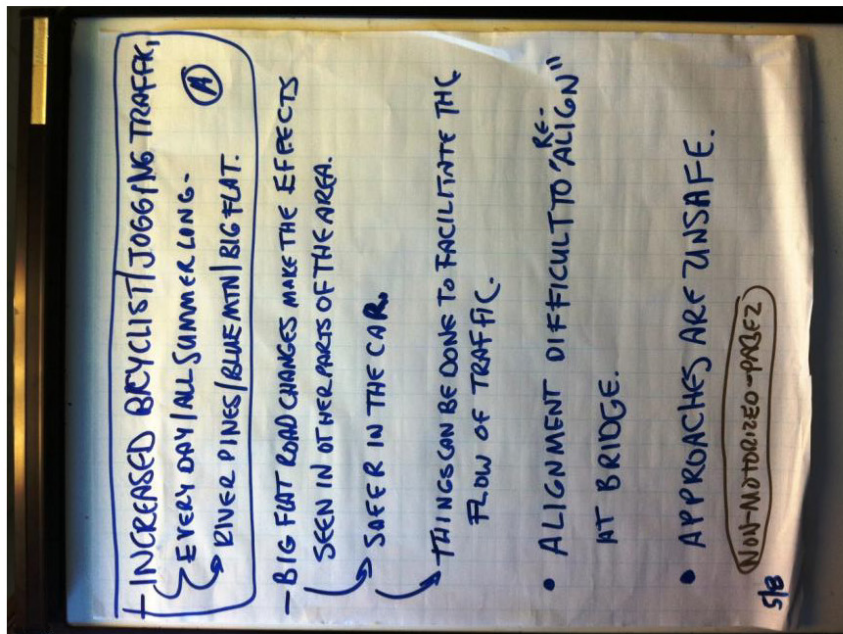 + INCREASED BICYCLIST/JOGGING TRAFFIC,
EVERY DAY/ALL SUMMER LONG-
RIVER PINES/BLUE MTN/BIG FLAT.
A
- BIG FLAT ROAD CHANGES MAKE THE EFFECTS
SEEN IN OTHER PARTS OF THE AREA.
SAFER IN THE CAR.
THINGS CAN BE DONE TO FACILITATE THE
FLOW OF TRAFFIC.
• ALIGNMENT DIFFICULT TO "RE-ALIGN"
AT BRIDGE.
• APPROACHES ARE UNSAFE.
NON-MOTORIZED-PAGE2
5/8